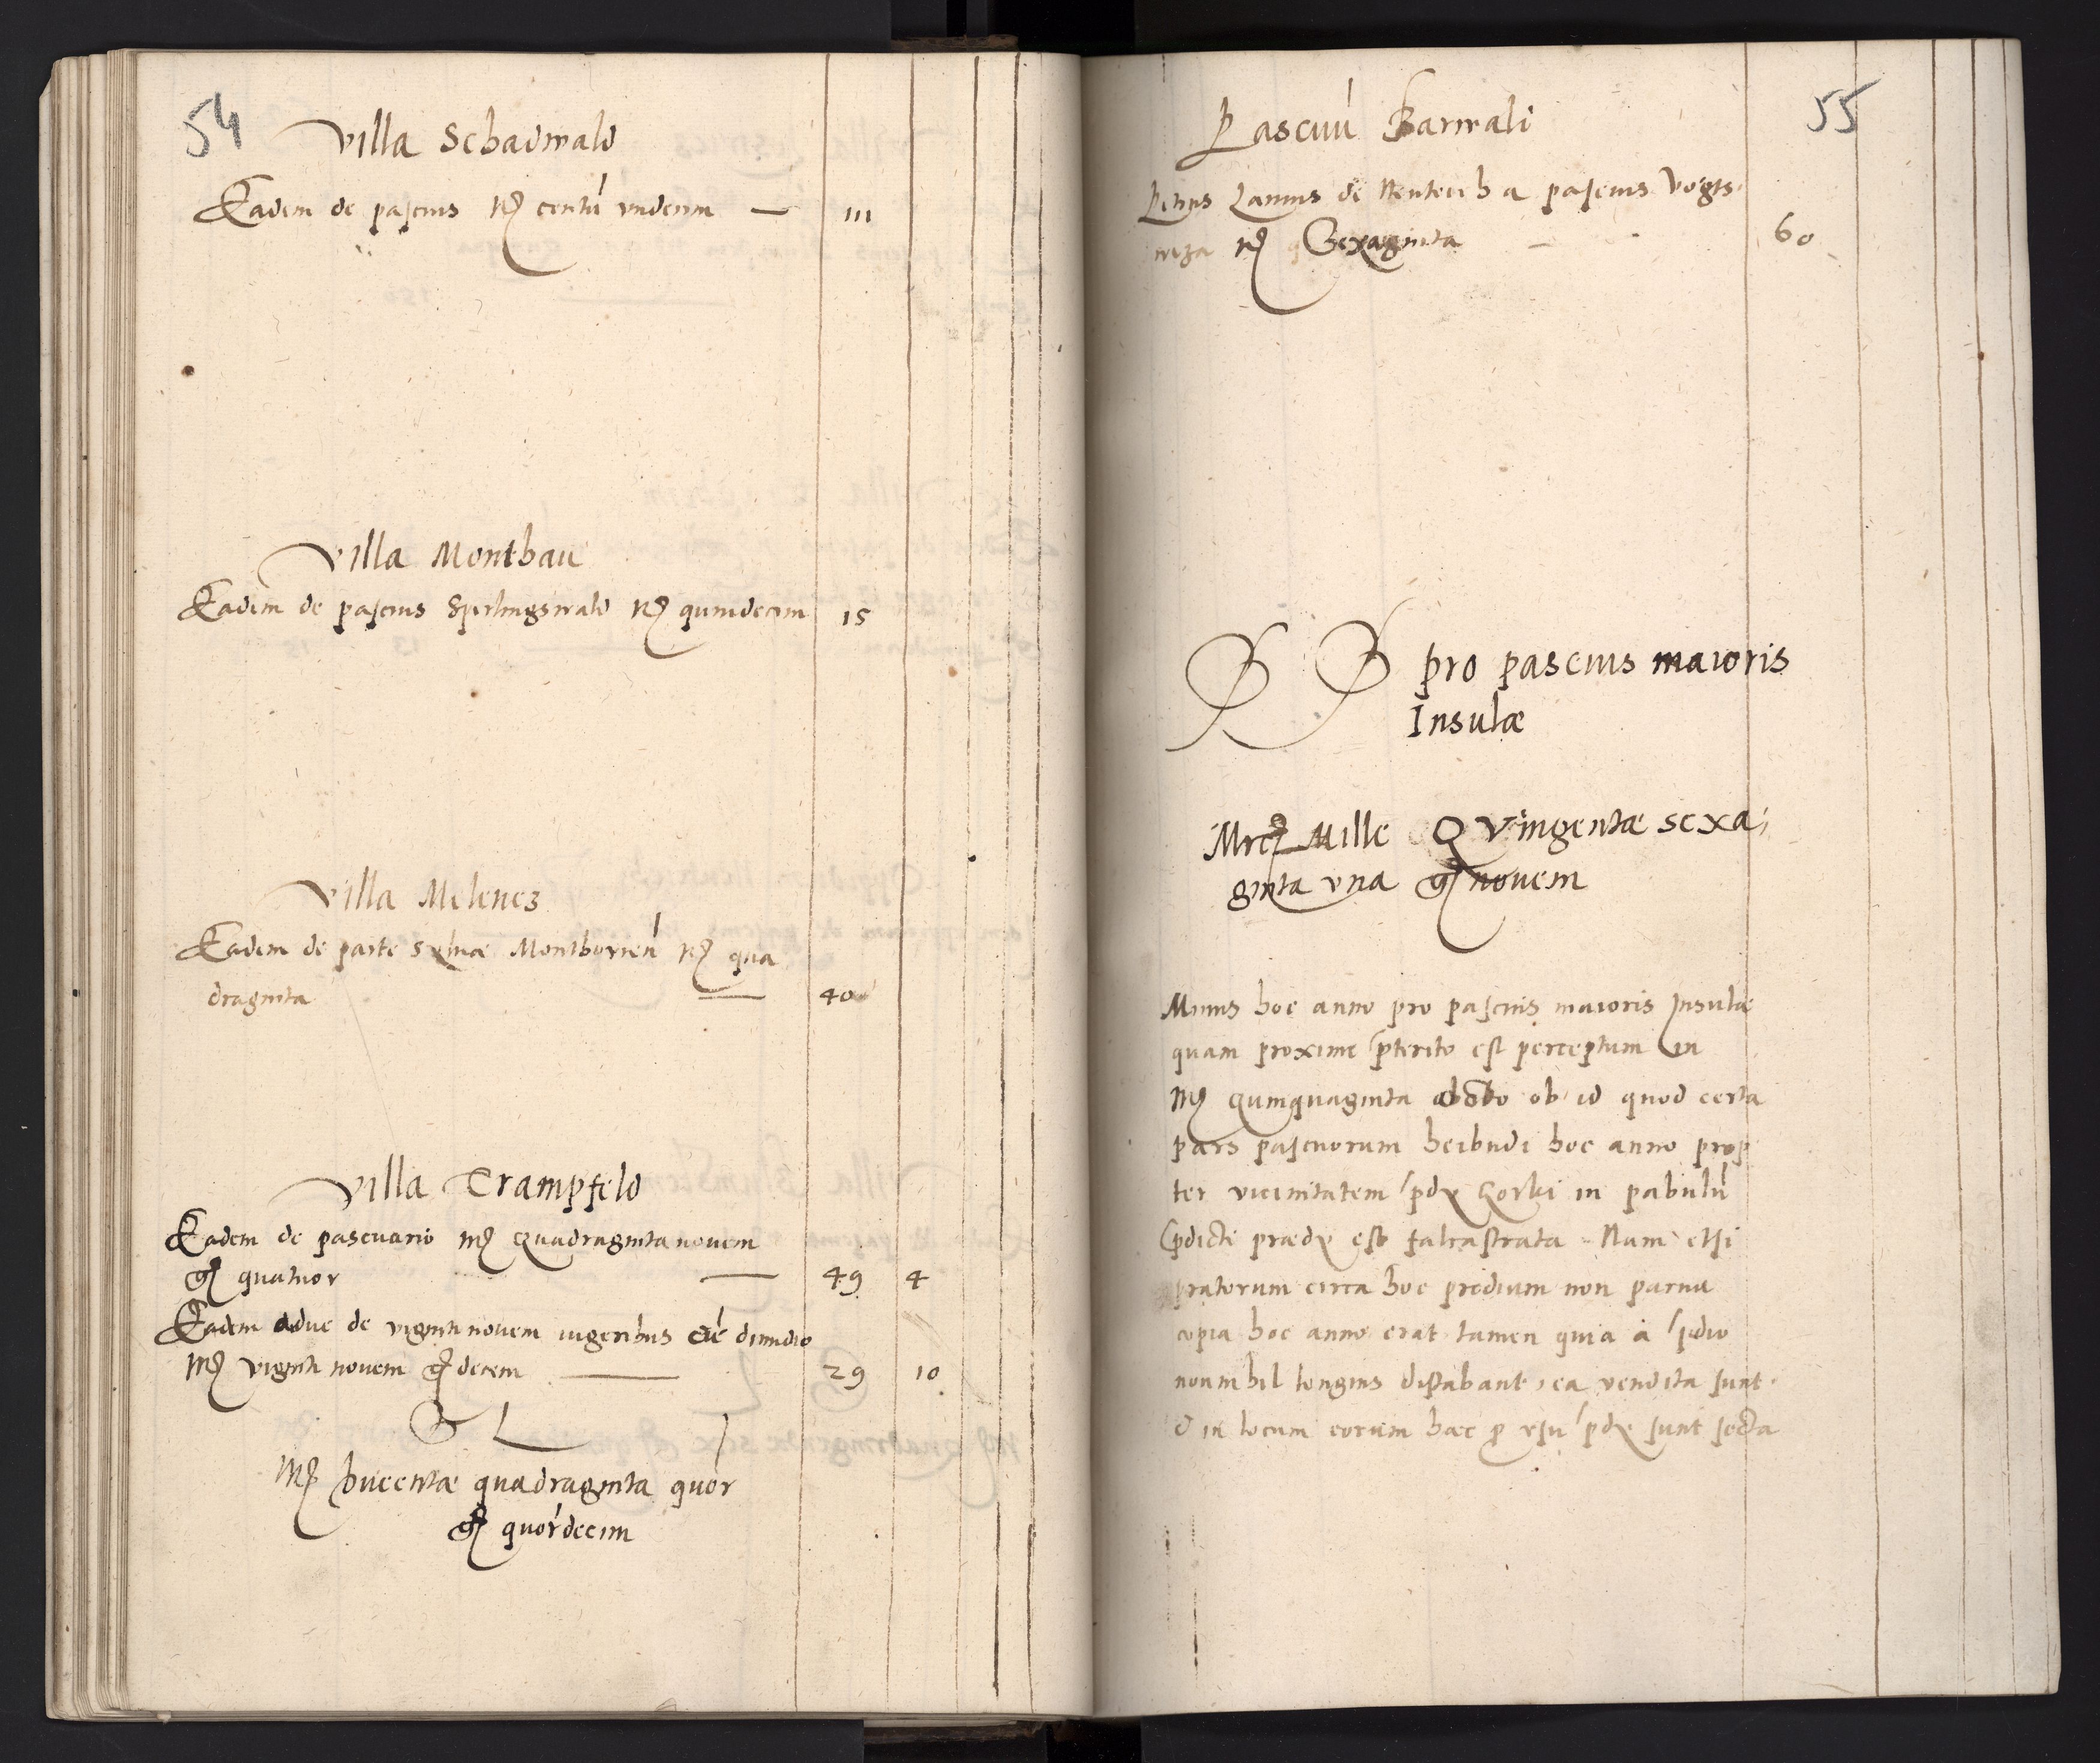 54
Villa Schadwald
Eadem de pascuis mȩ centū undecim — 111
Villa Montbau
Eadem de pascuis Sperlingswald mȩ quindecim 15
Villa Milencz
Eadem de parte sylvae Montboviēn mȩ qua
draginta — 40
Villa Trampfeld
Eadem de pascuario mȩ Quadraginta novem
gȩ quatuor — 49 4
Eadem adue de viginti novem iugeribus cū dimidio
mȩ viginti novem gȩ decem — 29 10
S L
Mȩ Ducentae quadraginta quor
gȩ quordecim
55
Pascuū Barwali
Petrus Lanius de Neuteich a pascuis Vogts
mȩ Sexaginta — 60
pro pascuis maioris
Insulae
Mrcȩ Mille Qvingentae sexa
ginta una gȩ novem
Minus hoc anno pro pascuis maioris Insulae
quam proxime pterito est perceptum in
mȩ Quinquaginta octo ob id quod certa
pars pascuorum heibudi hoc anno prop
ter vicinitatem pdy Gorki in pabulū
pdicti praedy est falcastrata Nam etsi
pratorum circa hoc predium non parva
copia hoc anno erat tamen quia à pdio
nonnihil longius distabant, ea vendita sunt
& in locum eorum haec p usu pdy sunt secta